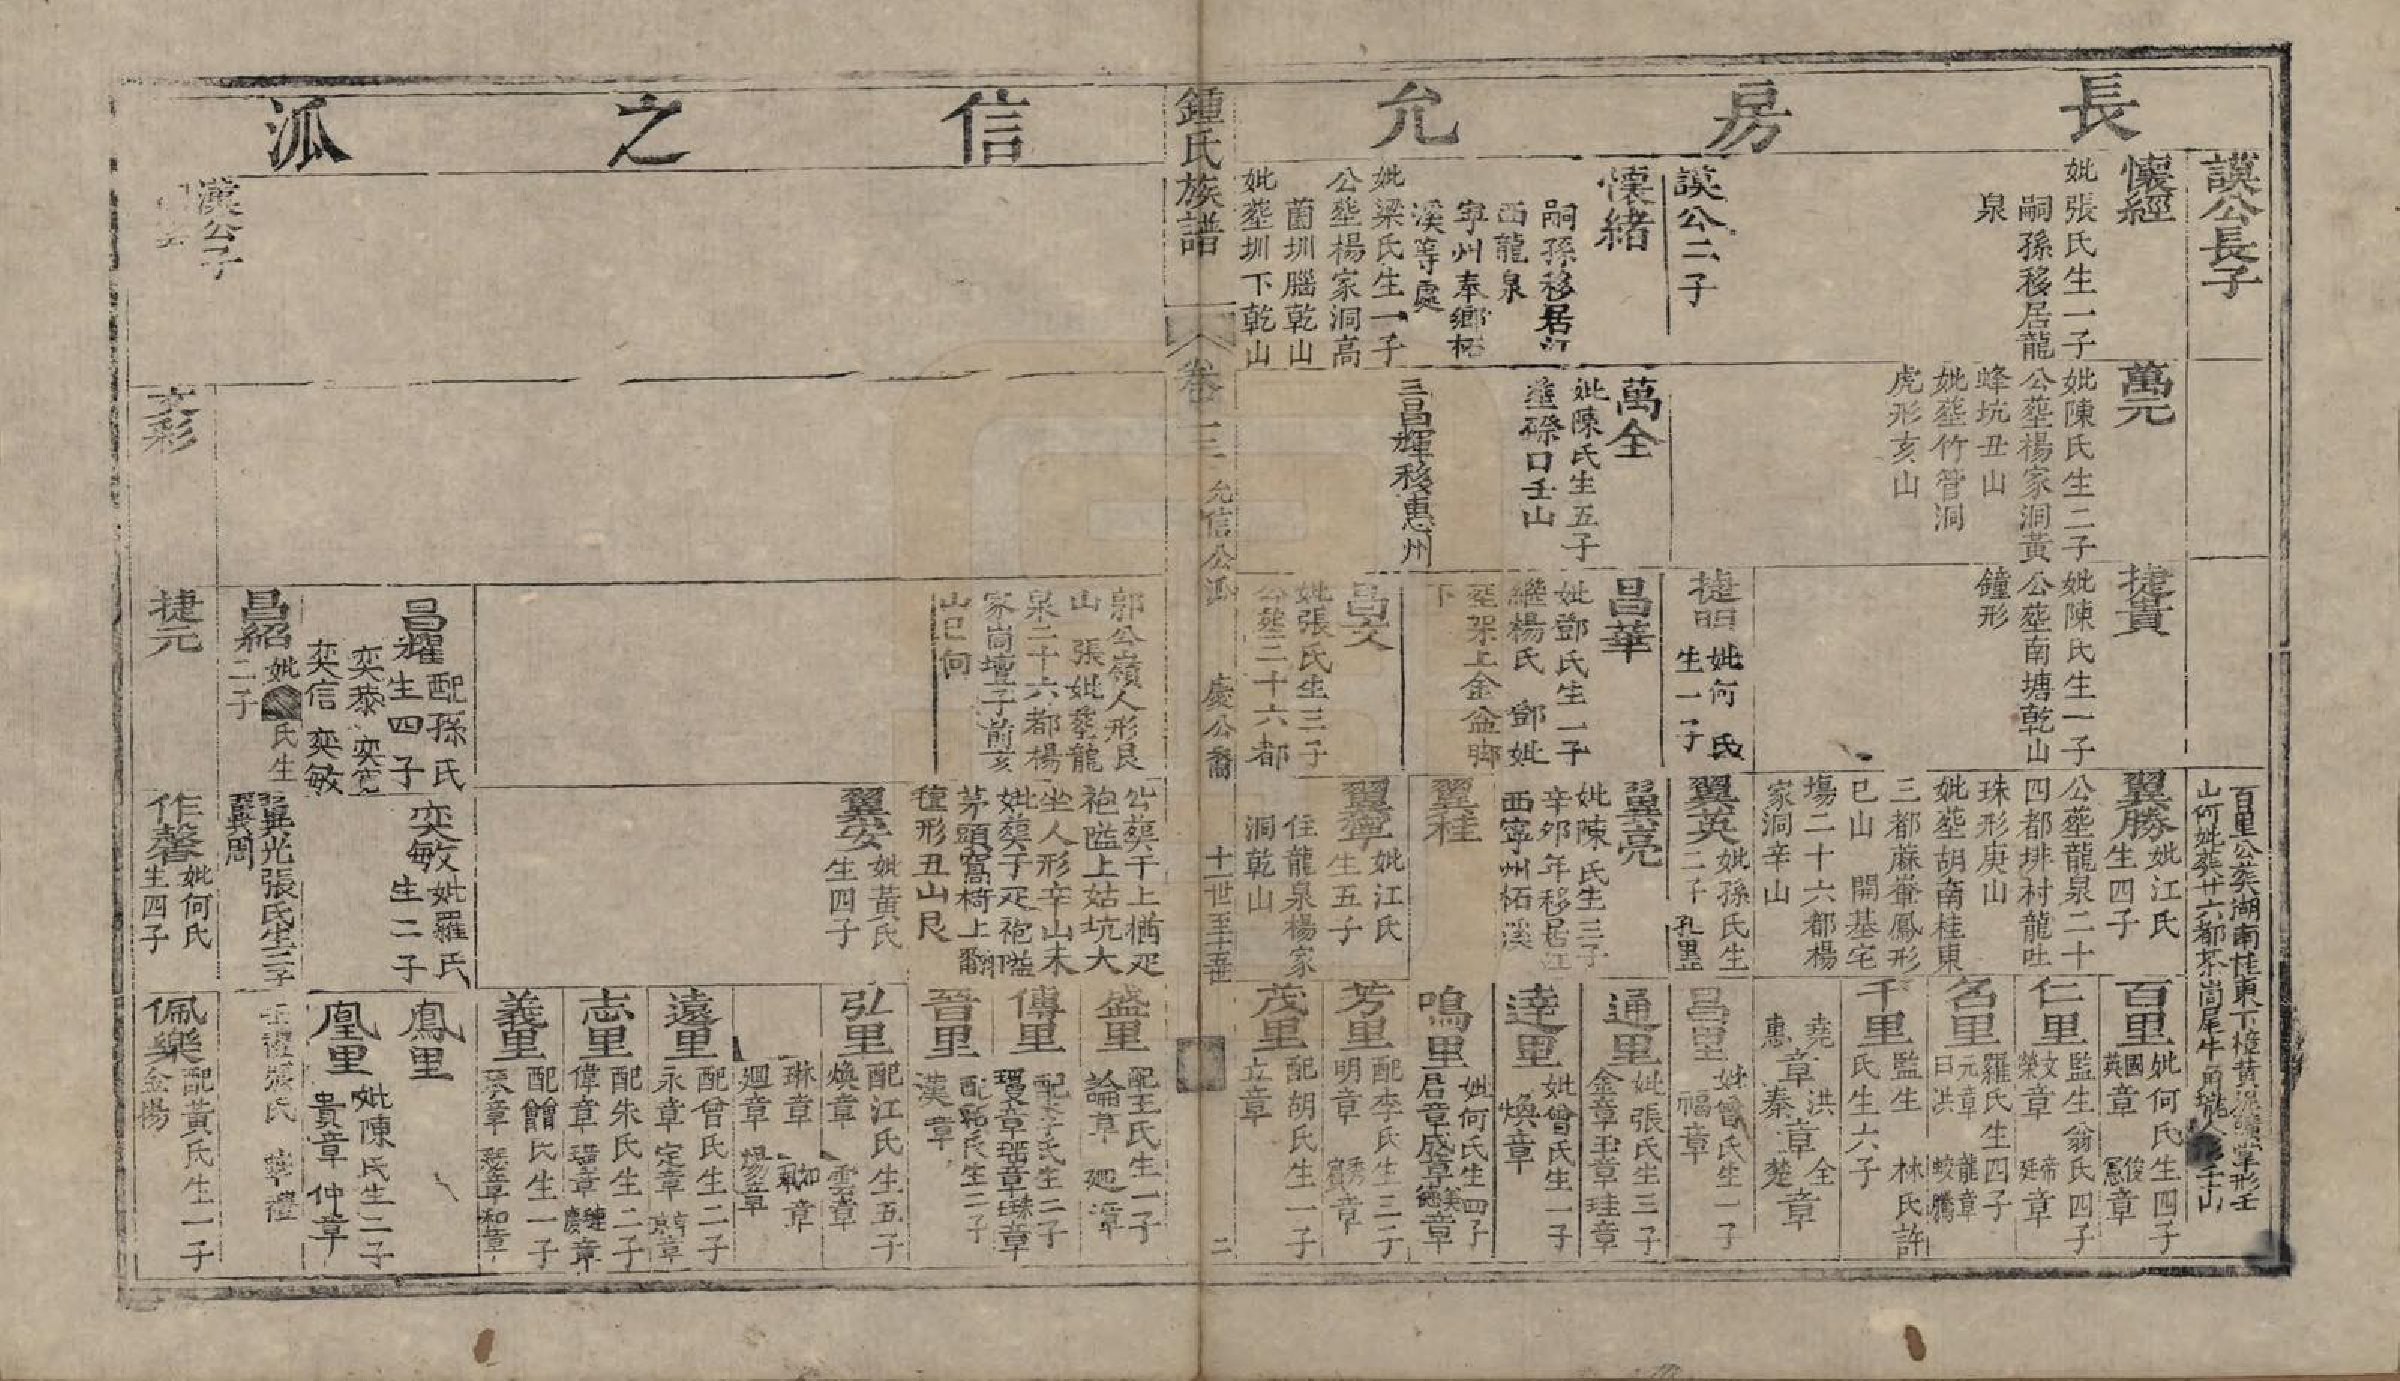 長房允信之派
謨公長子
懷經
妣張氏生一子
嗣孫移居龍
泉
謨公二子
懷緒
嗣孫移居江
西龍泉
寧州奉鄉柘
溪等處
妣梁氏生一子
公塟楊家洞高
菌圳腦乾山
妣塟圳下乾山
萬元
妣陳氏生二子
公塟楊家洞黃
蜂坑丑山
妣塟竹管洞
虎形亥山
萬全
妣陳氏生五子
塟磜口壬山
三昌輝移惠州
捷貴
妣陳氏生一子
公塟南塘乾山
鐘形
捷明
妣何氏
生一子
昌華
妣鄧氏生一子
繼楊氏 鄧妣
塟架上金盆腳
下
昌文
妣張氏生三子
公塟二十六都
百里公葬湖南桂東下橦黃泥壠掌形壬
山何妣葬廿六都茶崗尾牛角壠人形壬山
翼勝
妣江氏
生四子
公塟龍泉二十
四都排村龍吐
珠形庚山
妣塟胡南桂東
三都蔴輋鳳形
巳山 開基宅
塲二十六都楊
家洞辛山
翼英
妣孫氏生
二子
翼亮
妣陳氏生三子
辛夘年移居江
西寧州柘溪
翼桂
翼寧
妣江氏
生五子
住龍泉楊家
洞乾山
百里
妣何氏生四子
國章 俊
英 憲章
仁里
監生翁氏四子
文章 帝
榮 廷章
名里
羅氏生四子
元章 龍章
日洪 蛟騰
千里
監生 林氏許
氏生六子
堯章 洪章 全章
惠 秦 楚
昌里
妣曾氏生一子
福章
通里
妣張氏生三子
金章玉章珪章
達里
妣曾氏生一子
煥章
鳴里
妣何氏生四子
居章成章美章
芳里
配李氏生三子
明章 秀章
茂里
配胡氏生一子
立章
鍾氏族譜
卷三
允信公派
慶公裔
十一世至十五世
二
郭公嶺人形艮
山 張妣塟龍
泉二十六都楊
家崗壇子前亥
山巳向
公葬于上猶疋
袍隘上姑坑大
坐人形辛山未
妣葬于疋袍隘
茅頭窩椅上翻
氊形丑山艮
翼安
妣黃氏
生四子
盛里
配王氏生一子
論章 廻章
傳里
配李氏生二子
晉里
漢章
弘里
配江氏生五子
煥章 雲章
琳章
廻章 揚章
遠里
配曾氏生二子
永章 定章 京章
志里
配朱氏生二子
偉章
義里
生一子
昌耀
配孫氏
生四子
奕泰
奕信 奕敏
奕敏
妣羅氏
生二子
鳳里
凰里
妣陳氏生二子
貴章 仲章
昌紹
妣
氏生
二子
翼光張氏生二子
翼周
張氏
漢公子
文彩
捷元
作馨
妣何氏
生四子
佩樂
配黃氏生一子
金揚